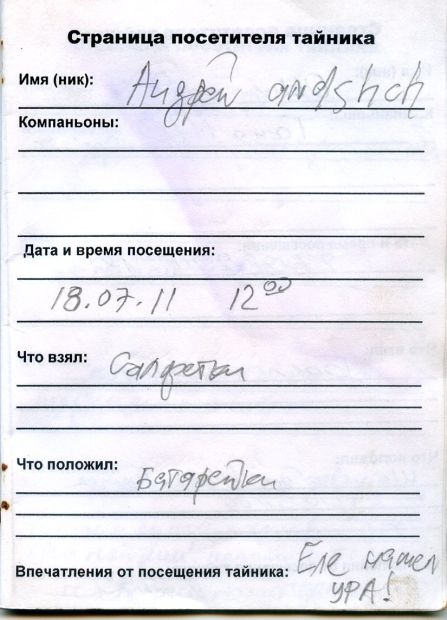 Страница посетителя тайника
Имя (ник): Андрей andshch
Компаньоны:
Дата и время посещения:
18.07.11 12⁰⁰
Что взял: Салфетки
Что положил: Батарейки
Впечатления от посещения тайника: Еле нашел
УРА!